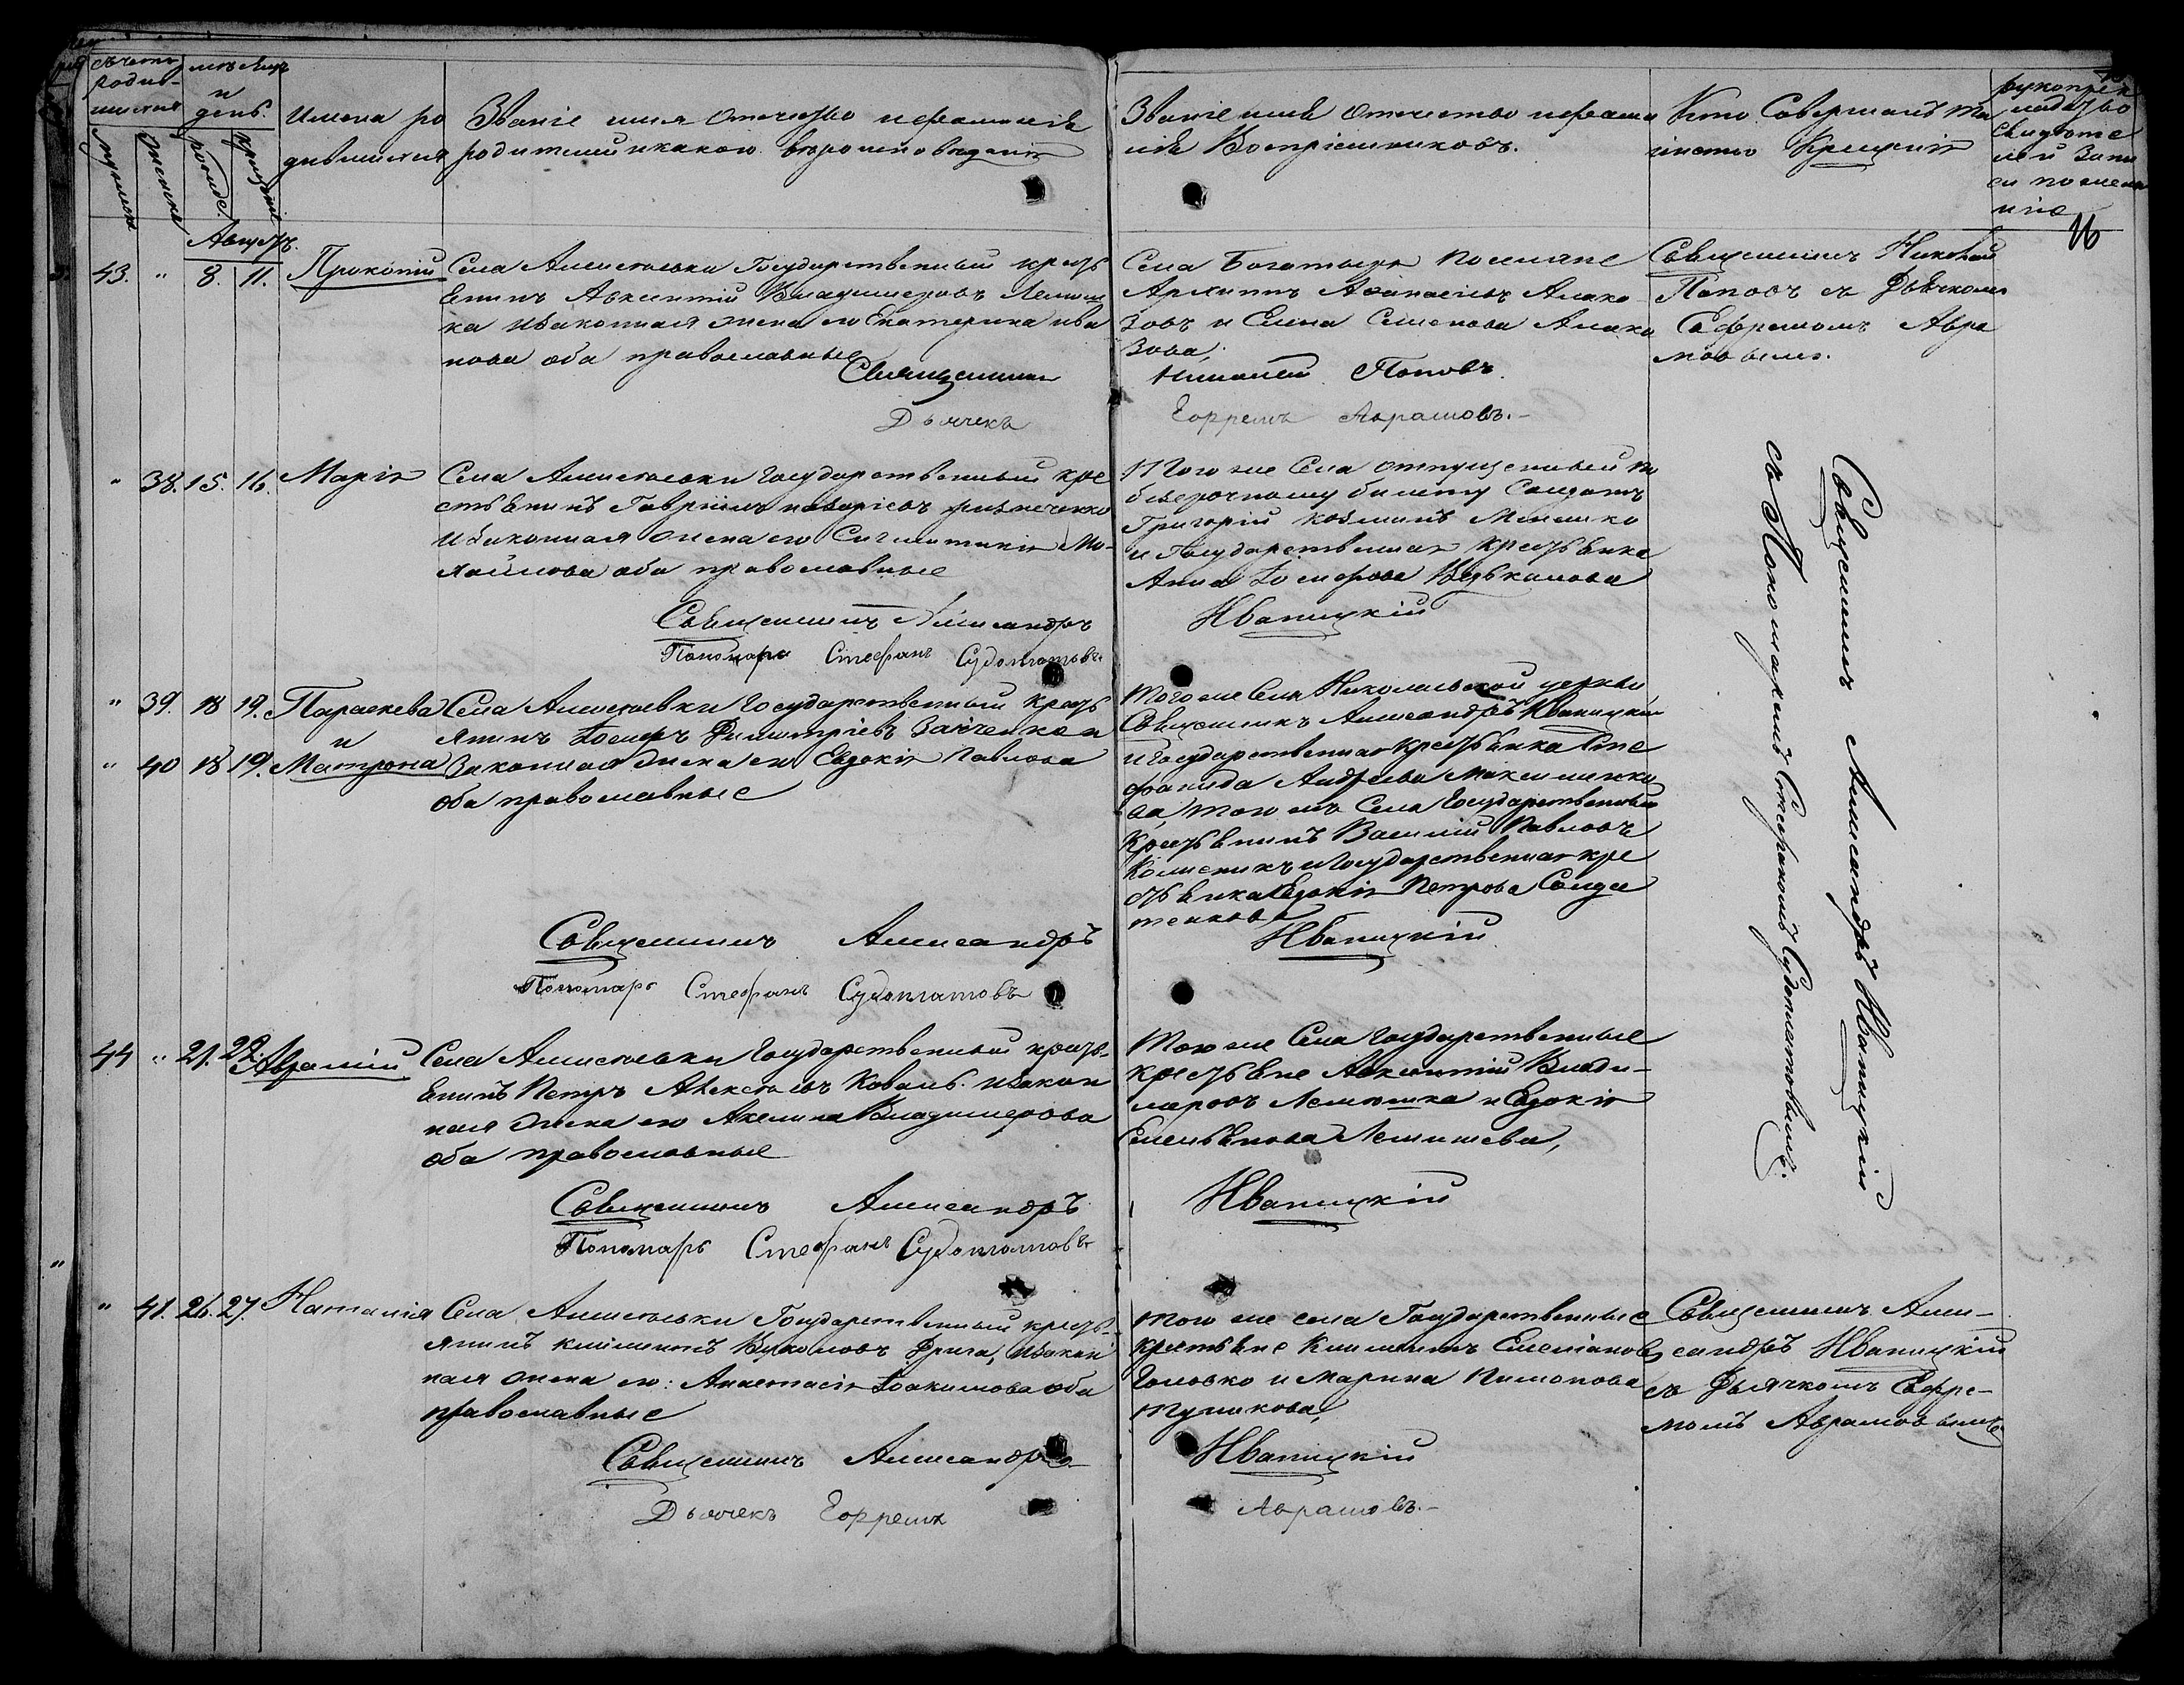 счетъ родив-
шихся
мѣсяцъ
и
день.
Имена ро
дившихся
Званіе имя отчество и фамилія
родителей и какого вѣроисповѣданія
Званіе имя отчество и фами
лія Воспріемниковъ.
Кто Совершалъ та
инство Крещенія
рукоприк
ладство
свидѣте
лей запи
си по жела
нію
мужска
женска
рожде.
крещені
16
Августъ.
43. " 8. 11. Прокопій
Села Алексѣевки Государственный кресть
ѣнинъ Авксентій Владимеровъ Лемеш
ка и законная жена его Екатерина Ива
нова оба православные
Села Богатыря поселяне
Архипъ Афанасіевъ Алака
зовъ и Елена Семенова Алака
зова,
Священникъ Николай
Поповъ съ Дьячкомъ
Ефремомъ Авра
мовымъ.
Священникъ Николай Поповъ.
Дьячекъ Ефремъ Аврамовъ.-
" 38. 15. 16. Марія
Села Алексѣевки Государственный кре
стьѣнинъ Гавріилъ
и законная жена его
оба православные
Того же Села отпущенный по
безсрочному билету Солдатъ
Григорій Козминъ
и Государственная крестьѣнка
Анна
Священникъ Александръ Иваницкій
Пономарь Стефанъ Судоплатовъ
" 39. 18 19. Параскева
и
" 40 18 19. Матрона
Села Алексѣевки Государственный кресть
янинъ Іосифъ Димитріевъ Заиченко и
Законная жена его Евдокія Павлова
оба православные
Того же Села Николаевской церкви
Священникъ Александръ Иваницкій
и Государственная крестьѣнка Сте
фанида Андреева Максименко
ва, того жъ Села Государственный
Крестьѣнинъ Василій Павловъ
Колисникъ и Государственная кре
стьѣнка Евдокія Петрова Солда
тенкова,
Священникъ Александръ Иваницкій
Пономарь Стефанъ Судоплатовъ
Священникъ Александръ Иваницкій
съ Пономаремъ Стефаномъ Судоплатовымъ.
44 " 21. 22. Аврамій
Села Алексѣевки Государственный кресть-
ѣнинъ Петръ Алексѣевъ Коваль. и закон
ная жена его Акелина Владимерова
оба православные
Того же Села Государственные
крестьѣне Авксентій Влади-
меровъ Лемешка и Евдокія
Емельѣнова Лемишева,
Священникъ Александръ Иваницкій
Пономарь Стефанъ Судоплатовъ
" 41. 26. 27. Наталія
Села Алексѣевки Государственный кресть-
янинъ Климентъ Вуколовъ Дрига, и закон
ная жена его: Анастасія Іоакимова оба
православные
Того же села Государственные
крестьѣне Климентъ Емеліановъ
Головко и Марина Пимонова
Тупикова,
Священникъ Алек-
сандръ Иваницкій
съ Дьячкомъ Ефре-
момъ Аврамовымъ
Священникъ Александръ Иваницкій
Дьячекъ Ефремъ Аврамовъ.-